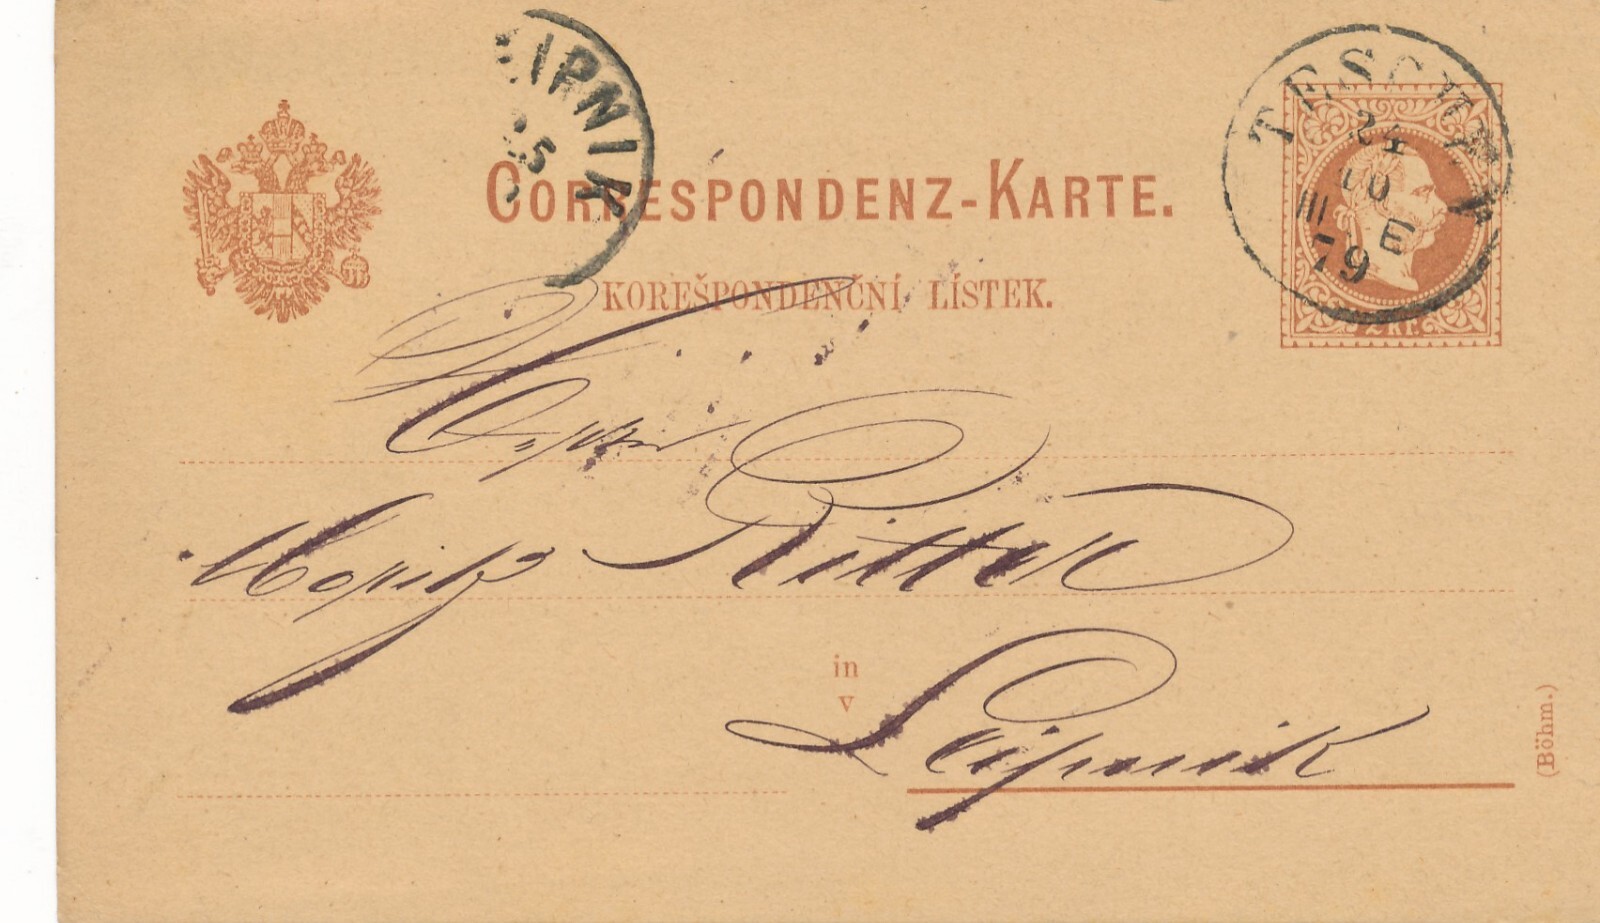 CORRESPONDENZ-KARTE.
KOREŠPONDENČNÍ LÍSTEK.
TESCHEN
24
III
E
79
2 Kr.
25
Herrn
Moritz Ritter
in
v
Leipnik
(Böhm.)